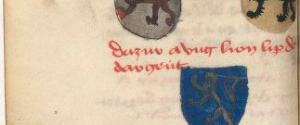 dazur a vng lion lip de
dargent